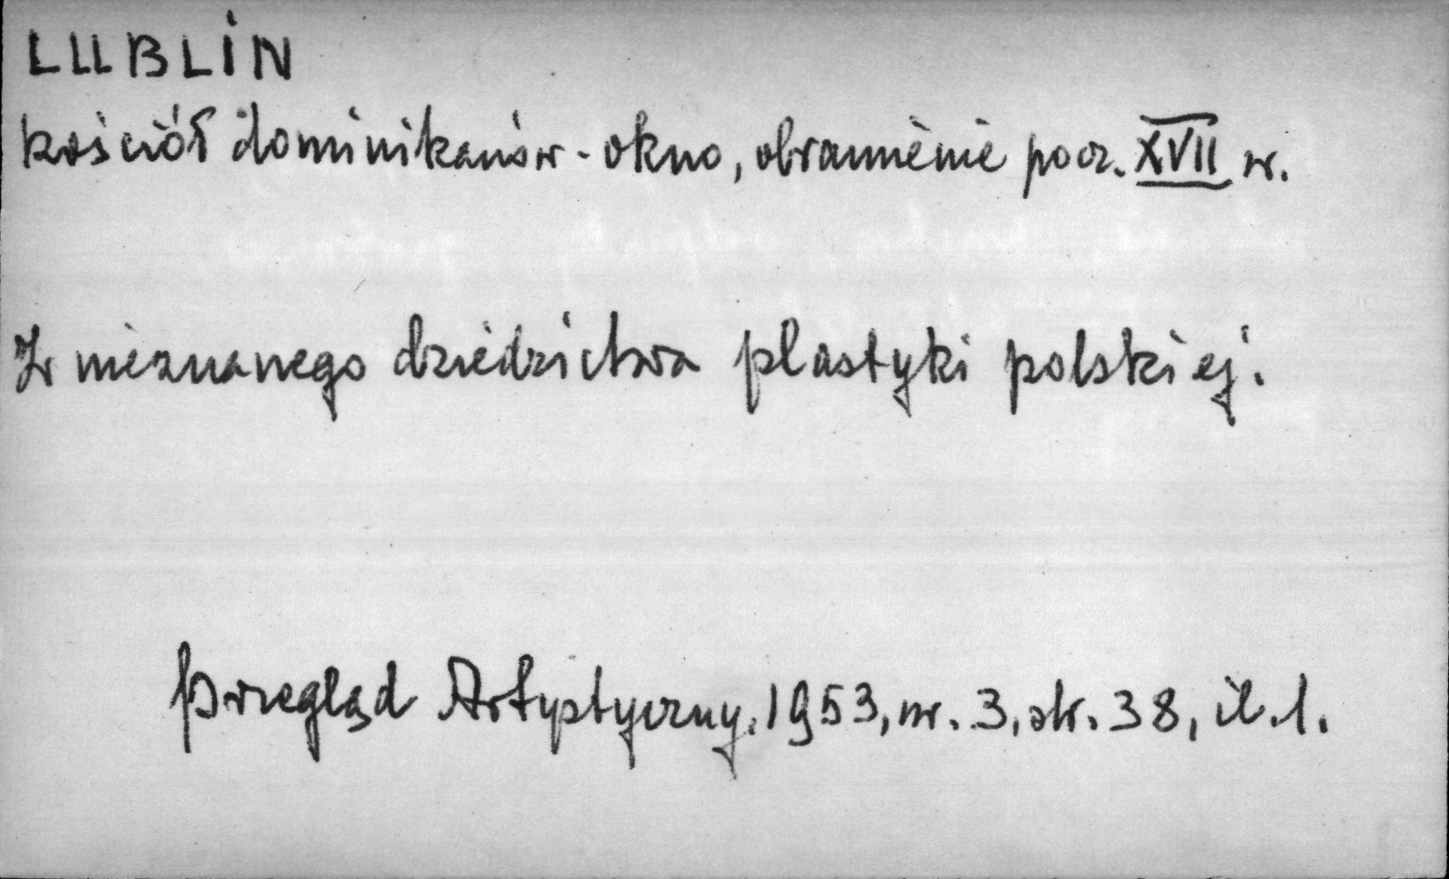 LUBLIN
kościół dominikanów - okno, obramienie pocz. XVII w.
Z nieznanego dziedzictwa plastyki polskiej.
Przegląd Artystyczny, 1953, nr. 3, str. 38, il. 1.